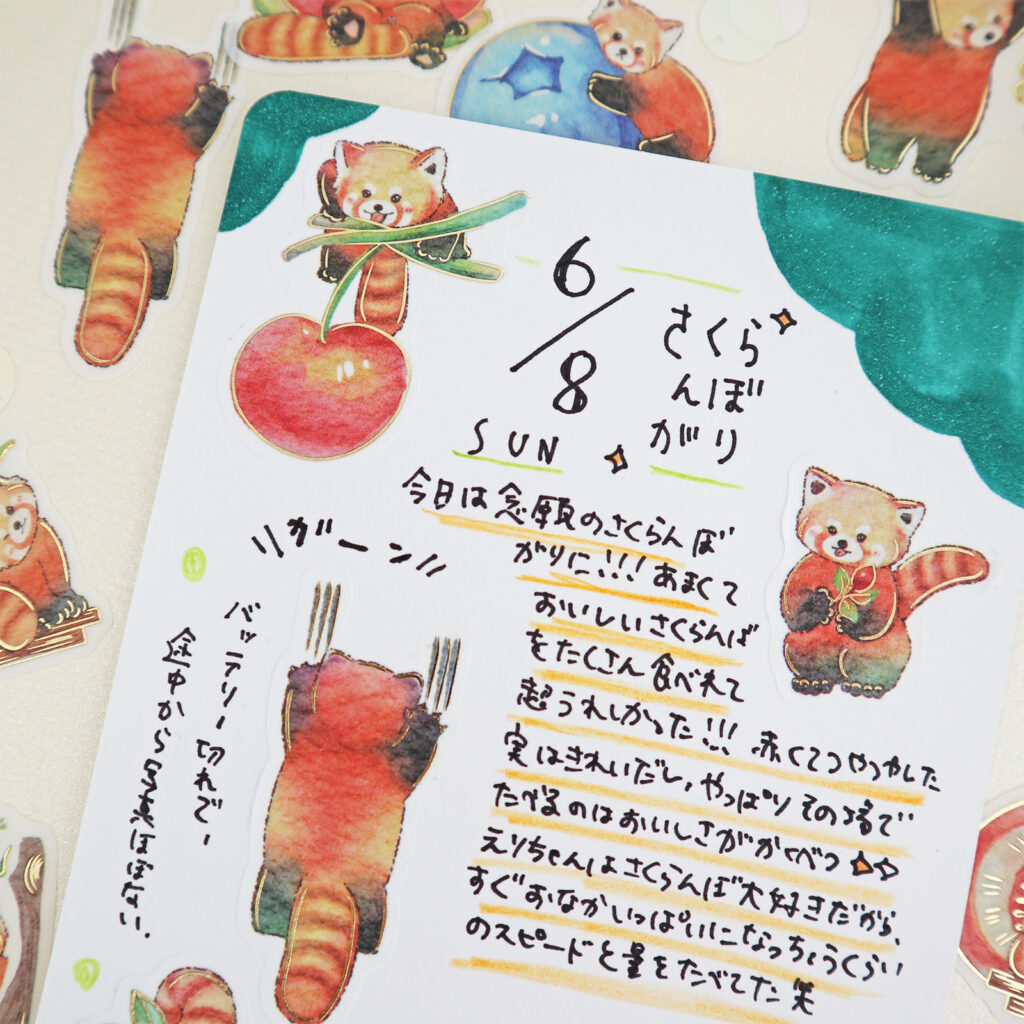 6/8
SUN
さくら
んぼ
がり
今日は念願のさくらんぼ
がりに!!!あまくて
おいしいさくらんぼ
をたくさん食べれて
超うれしかった!!!赤くてつやつやした
実はきれいだし、やっぱりその場で
たべるのはおいしさがかくべつ
えりちゃんはさくらんぼ大好きだから、
すぐおなかいっぱいになっちゃうくらい
のスピードと量をたべてた笑
リガーン!!
バッテリー切れで、
途中から写真ほぼない.